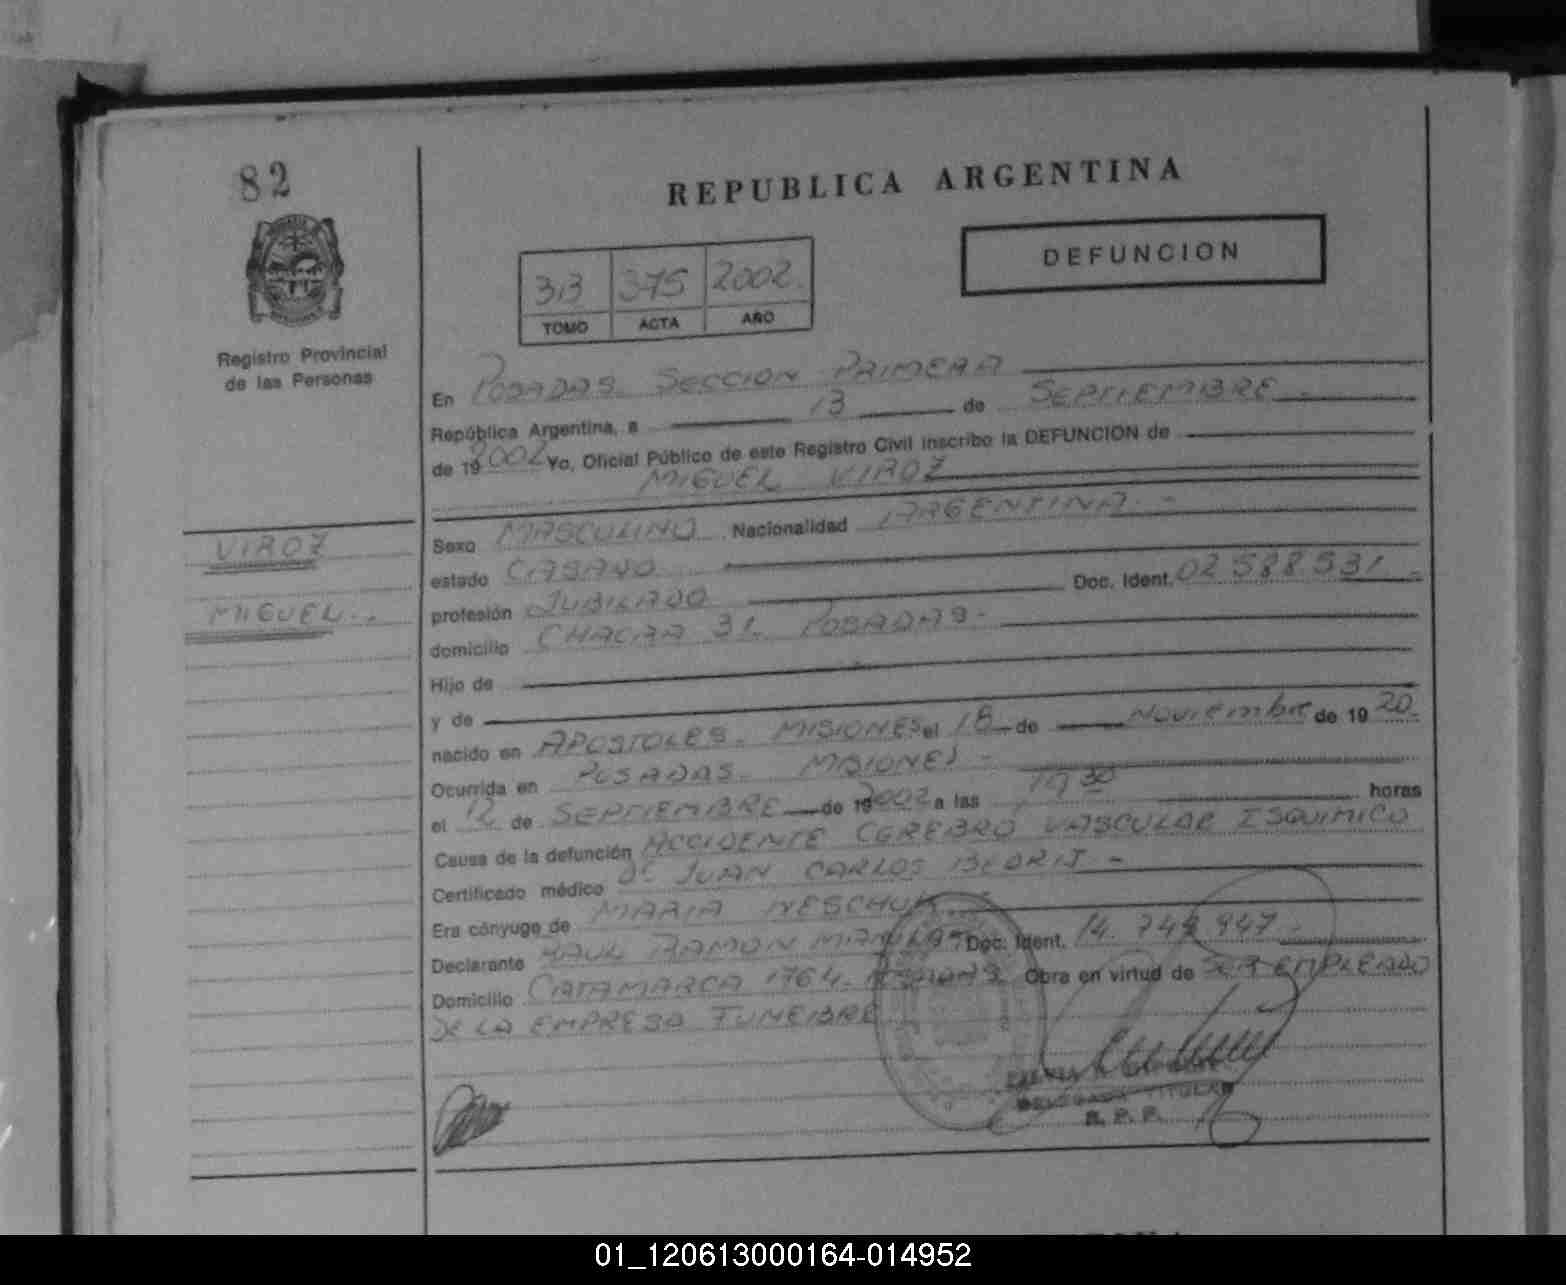 82
REPUBLICA ARGENTINA
DEFUNCION
313 375 2002.
TOMO ACTA AÑO
Registro Provincial
de las Personas
En POSADAS. SECCION PRIMERA
República Argentina, a 13 de SEPTIEMBRE.-
de 19 2002 Yo, Oficial Público de este Registro Civil inscribo la DEFUNCION de
MIGUEL VIROZ
VIROZ
MIGUEL..
Sexo MASCULINO Nacionalidad ARGENTINA.-
estado CASADO
profesión JUBILADO Doc. Ident. 02.588.531.-
domicilio CHACRA 31. POSADAS-
Hijo de
y de
nacido en APOSTOLES. MISIONES el 18 de NOVIEMBRE de 19 20.
Ocurrida en POSADAS. MISIONES-
el 12 de SEPTIEMBRE de 19 2002 a las 19 30 horas
Causa de la defunción ACCIDENTE CEREBRO VASCULAR ISQUIMICO
Certificado médico Dr JUAN CARLOS BEDRIJ-
Era cónyuge de MARIA NESCHUK
Declarante RAUL RAMON Doc. Ident. 14.749.947.-
Domicilio CATAMARCA 1764. POSADAS. Obra en virtud de SER EMPLEADO
DE LA EMPRESA FUNEBRE
DELEGADA TITULAR
R. P. P.
01_120613000164-014952